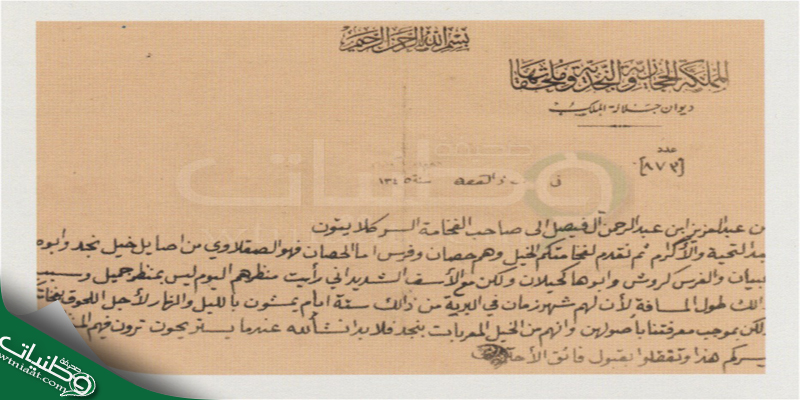 بسم الله الرحمن الرحيم
المملكة الحجازية والنجدية وملحقاتها
ديوان جلالة الملك
عدد
[٨٧٣]
في ذو القعدة سنة ١٣٤٥
من عبدالعزيز ابن عبدالرحمن آل فيصل الى صاحب الفخامة السر كلايتون
بعد التحية والاكرام ثم نقدم لفخامتكم الخيل وهم حصان وفرس اما الحصان فهو الصقلاوي من اصايل خيل نجد وابوه
عبيان والفرس كروش وابوها كحيلان ولكن مع الأسف الشديد اني رأيت منظرهم اليوم ليس بمنظر جميل وسبب
ذالك طول المسافة لأن لهم شهر زمان في البرية من ذالك ستة ايام يمشون بالليل والنهار لأجل اللحوق بفخامتكم
ولكن بموجب معرفتنا بأصولهن وانهم من الخيل المعربات بنجد فلابد انشأ الله عندما يستريحون ترون فيهم
يسركم هذا وتفضلوا بقبول فائق
صحيفة
وطنيات
wtniaat.com